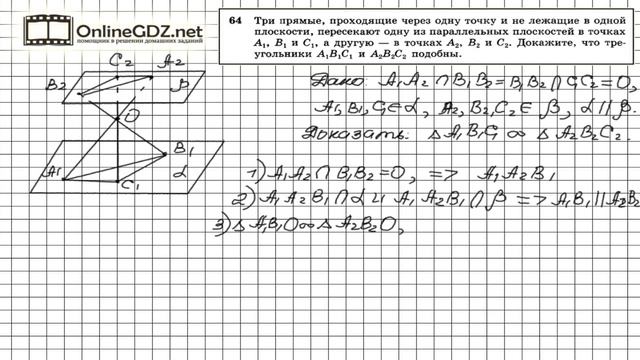 OnlineGDZ.net
помощник в решении домашних заданий
64 Три прямые, проходящие через одну точку и не лежащие в одной
плоскости, пересекают одну из параллельных плоскостей в точках
A₁, B₁ и C₁, а другую — в точках A₂, B₂ и C₂. Докажите, что тре-
угольники A₁B₁C₁ и A₂B₂C₂ подобны.
C₂ A₂
B₂ β
O
B₁
A₁ C₁ α
Дано: A₁A₂ ∩ B₁B₂ = B₁B₂ ∩ C₁C₂ = O,
A₁, B₁, C₁ ∈ α, A₂, B₂, C₂ ∈ β, α ∥ β.
Доказать: △ A₁B₁C₁ ∞ △ A₂B₂C₂.
1) A₁A₂ ∩ B₁B₂ = O, => A₁A₂B₁
2) A₁A₂B₁ ∩ α и A₁A₂B₁ ∩ β => A₁B₁ ∥ A₂B₂
3) △ A₁B₁O ∞ △ A₂B₂O,